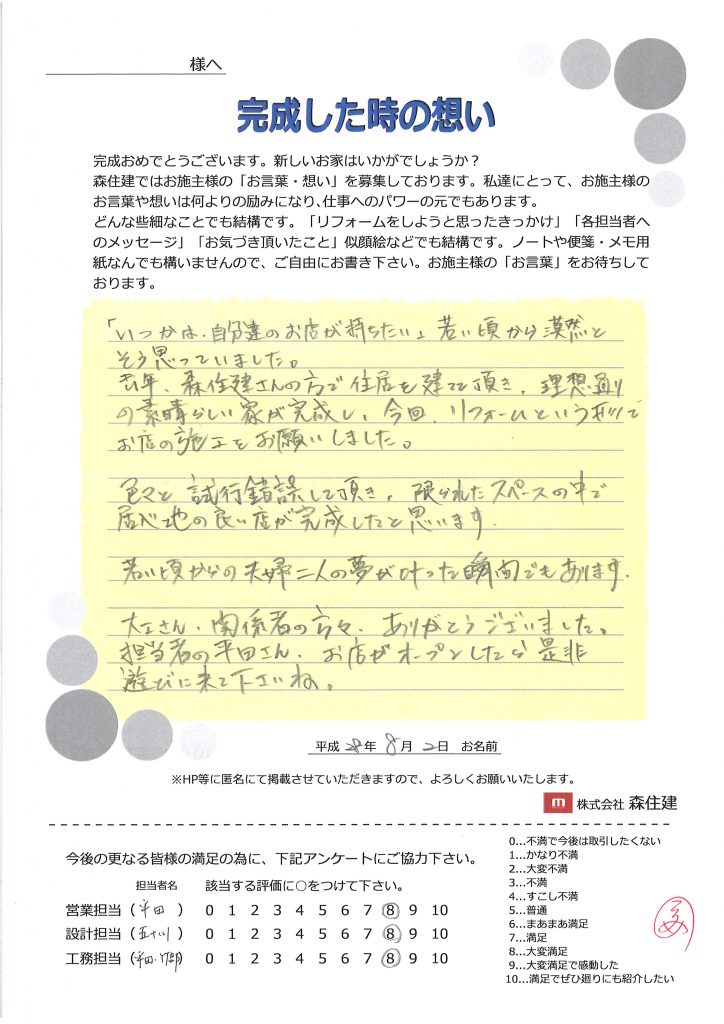 様へ
完成した時の想い
完成おめでとうございます。新しいお家はいかがでしょうか？
森住建ではお施主様の「お言葉・想い」を募集しております。私達にとって、お施主様の
お言葉や想いは何よりの励みになり、仕事へのパワーの元でもあります。
どんな些細なことでも結構です。「リフォームをしようと思ったきっかけ」「各担当者へ
のメッセージ」「お気づき頂いたこと」似顔絵などでも結構です。ノートや便箋・メモ用
紙なんでも構いませんので、ご自由にお書き下さい。お施主様の「お言葉」をお待ちして
おります。
「いつかは、自分達のお店が持ちたい」若い頃から漠然と
そう思っていました。
去年、森住建さんの方で住居を建てて頂き、理想通り
の素晴らしい家が完成し、今回、リフォームという形で
お店の施工をお願いしました。
色々と試行錯誤して頂き、限られたスペースの中で
居心地の良い店が完成したと思います。
若い頃からの夫婦二人の夢が叶った瞬間でもあります。
大工さん、関係者の方々、ありがとうございました。
担当者の平田さん、お店がオープンしたら是非
遊びに来て下さいね。
平成 28年 8月 2日 お名前
※HP等に匿名にて掲載させていただきますので、よろしくお願いいたします。
m 株式会社 森住建
今後の更なる皆様の満足の為に、下記アンケートにご協力下さい。
担当者名 該当する評価に○をつけて下さい。
営業担当（平田）0 1 2 3 4 5 6 7 8 9 10
設計担当（五十川）0 1 2 3 4 5 6 7 8 9 10
工務担当（平田・）0 1 2 3 4 5 6 7 8 9 10
0…不満で今後は取引したくない
1…かなり不満
2…大変不満
3…不満
4…すこし不満
5…普通
6…まあまあ満足
7…満足
8…大変満足
9…大変満足で感動した
10…満足でぜひ廻りにも紹介したい